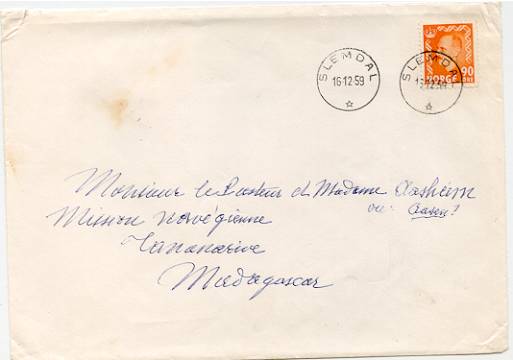 SLEMDAL
16·12·59
SLEMDAL
12·59
NORGE
90
ØRE
Monsieur le Pasteur et Madame Aasheim
ou: Aasen?
Mission norvégienne
Tananarive
Madagascar